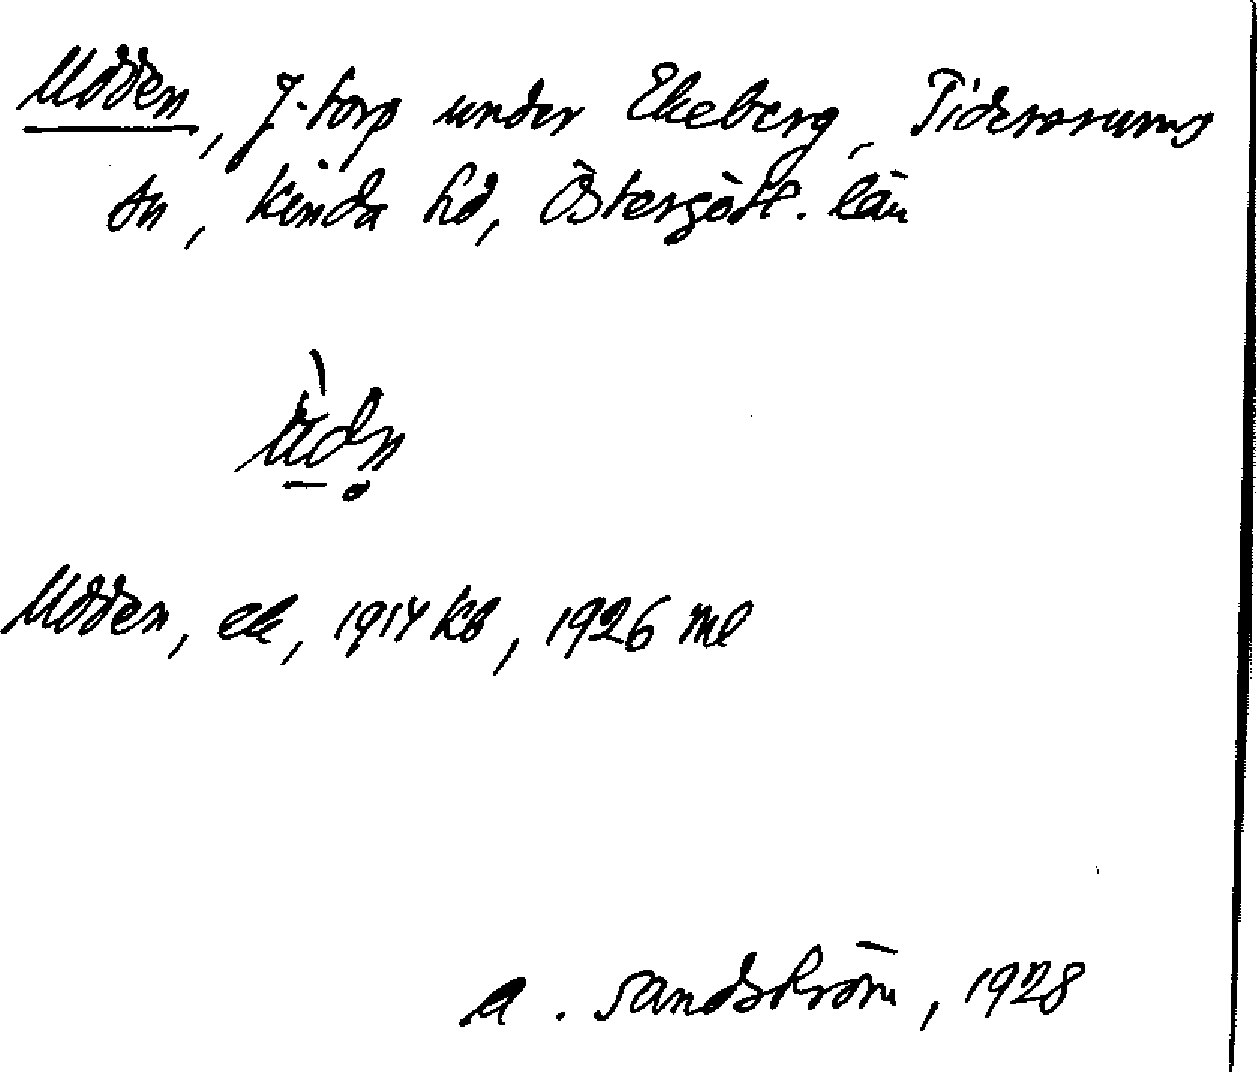 Udden, f. torp under Ekeberg, Tidersrums
sn, Kinda hd, Östergötl. län
Udden, ek, 1914 kb, 1926 ml
A. Sandström, 1928